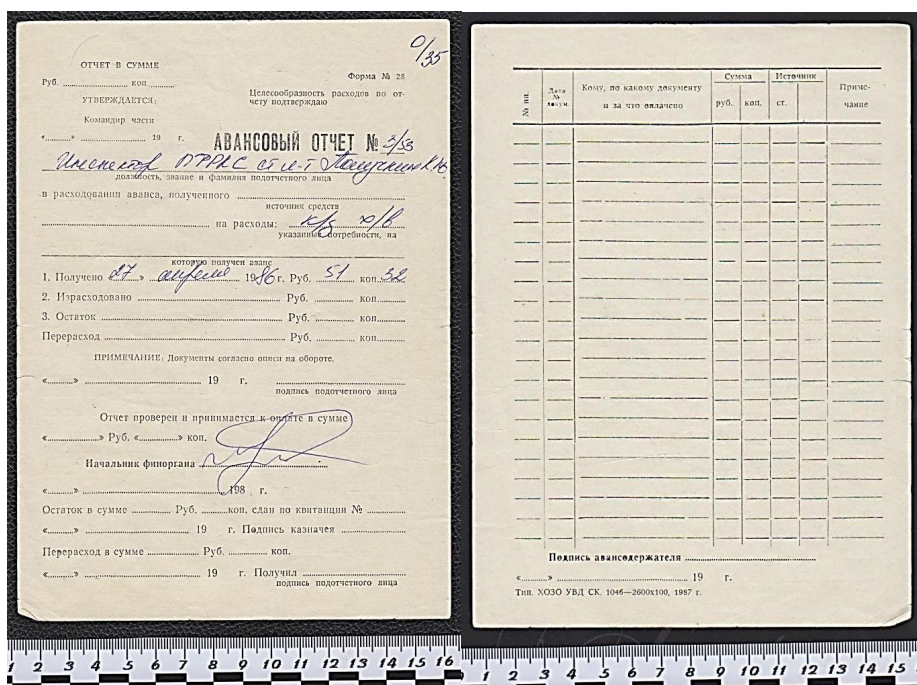 0/35
ОТЧЕТ В СУММЕ
Руб. ........ коп. ........
Форма № 28
УТВЕРЖДАЕТСЯ:
Целесообразность расходов по от-
чету подтверждаю
Командир части
«......» ........ 19 г.
АВАНСОВЫЙ ОТЧЕТ № 3/53
Инспектор ст л-т
должность, звание и фамилия подотчетного лица
в расходования аванса, полученного ........
источник средств
........ на расходы: х/в
указанные потребности, на
которую получен аванс
1. Получено 27 » апреля 1986 г. Руб. 51 коп. 32
2. Израсходовано ........ Руб. ........ коп. ........
3. Остаток ........ Руб. ........ коп. ........
Перерасход ........ Руб. ........ коп. ........
ПРИМЕЧАНИЕ: Документы согласно описи на обороте.
«......» ........ 19 г. ........
подпись подотчетного лица
Отчет проверен и принимается к оплате в сумме
«........» Руб. «........» коп.
Начальник финоргана ........
«......» ........ 198 г.
Остаток в сумме ........ Руб. ........ коп. сдан по квитанции № ........
«......» ........ 19 г. Подпись казначея ........
Перерасход в сумме ........ Руб. ........ коп.
«......» ........ 19 г. Получил ........
подпись подотчетного лица
1 2 3 4 5 6 7 8 9 10 11 12 13 14 15 16
№ пп.
Дата № докум.
Кому, по какому документу и за что оплачено
Сумма
руб. коп.
Источник
ст.
Приме-
чание
Подпись авансодержателя ........
«......» ........ 19 г.
Тип. ХОЗО УВД СК. 1046—2600х100, 1987 г.
1 2 3 4 5 6 7 8 9 10 11 12 13 14 15